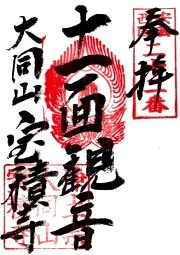 奉拝
十一面観音
大同山
宝積寺